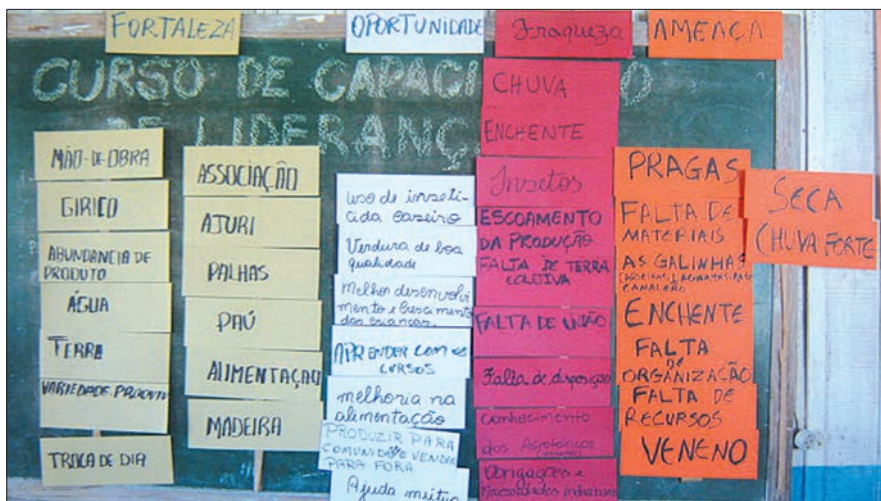 FORTALEZA
OPORTUNIDADE
Fraqueza
AMEAÇA
CURSO DE CAPACI O
DE LIDERANÇ
MÃO-DE-OBRA
GIRICO
ABUNDANCIA DE
PRODUTO
ÁGUA
TERRA
VARIEDADE
TROCA DE DIA
ASSOCIAÇÃO
AJURI
PALHAS
PAÚ
ALIMENTAÇÃO
MADEIRA
uso de inseti-
cida caseiro
Verdura de boa
qualidade
Melhor desenvolvi
mento e crescimento
das crianças.
APRENDER COM OS
CURSOS
melhoria na
alimentação
PRODUZIR PARA
COMUNIDADE VENDER
PARA FORA
Ajuda mútua
CHUVA
ENCHENTE
Insetos
ESCOAMENTO
DA PRODUÇÃO
FALTA DE TERRA
COLETIVA
FALTA DE UNIÃO
Falta de disposição
conhecimento
dos Agrotóxicos
Obrigações e
necessidades
PRAGAS
FALTA DE
MATERIAIS
AS GALINHAS
CAMALEÃO
ENCHENTE
FALTA
DE
ORGANIZAÇÃO
FALTA DE
RECURSOS
VENENO
SECA
CHUVA FORTE